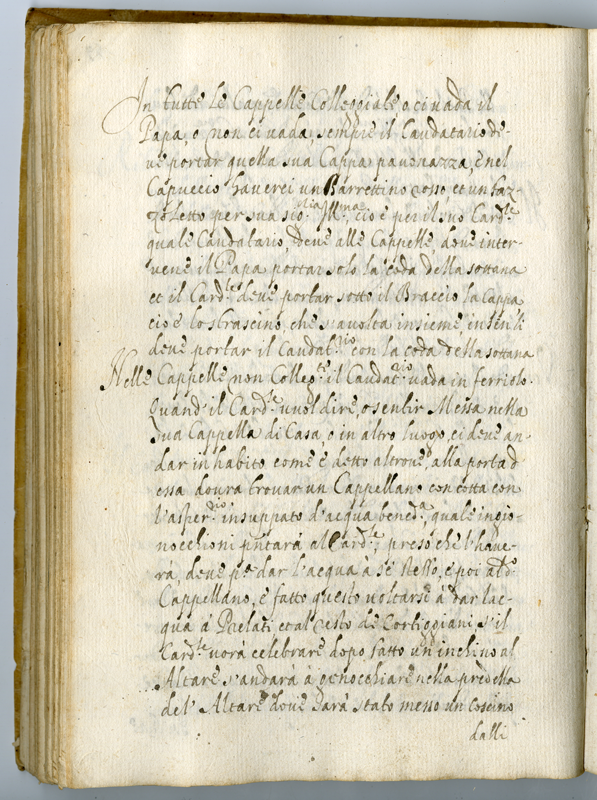 In tutte le Cappelle Collegiale o ci vada il
Papa, o non ci vada, sempre il Caudatario de-
ve portar quella sua Cappa pauonazza, e nel
Capuccio hauerci un Barrettino rosso et un faz-
zoletto per sua sig.ria Ill.ma, cioè per il suo Card.le
quale Caudatario, deue alle Cappelle doue inter-
uene il Papa portar solo la coda della sottana
et il Card.le deue portar sotto il Braccio la Cappa
cioè lo strascino, che s'auolta insieme,
deue portar il Caudat.rio con la coda della sottana
Nelle Cappelle non Colleg.te il Caudat.rio uada in ferriolo.
Quand' il Card.le uuol dire, o sentir Messa nella
sua Cappella di Casa, o in altro luogo, ci deue an-
dar in habito come è detto altroue, alla porta d'
essa dourà trouar un Cappellano con cotta con
l'asper.rio insuppato d'acqua bened.a, quale ingi-
nocchioni pntarà al Card.le, preso che l'haue-
rà, deue p.a dar l'acqua à se stesso, e poi al d.o
Cappellano, e fatto questo uoltarsi à dar l'ac-
qua a Prelati et al resto de Cortiggiani s'il
Card.le uorà celebrare dopo fatto un inchino al
Altare s'andarà à genocchiare nella predella
del' Altare doue sarà stato messo un Coscino
dalli